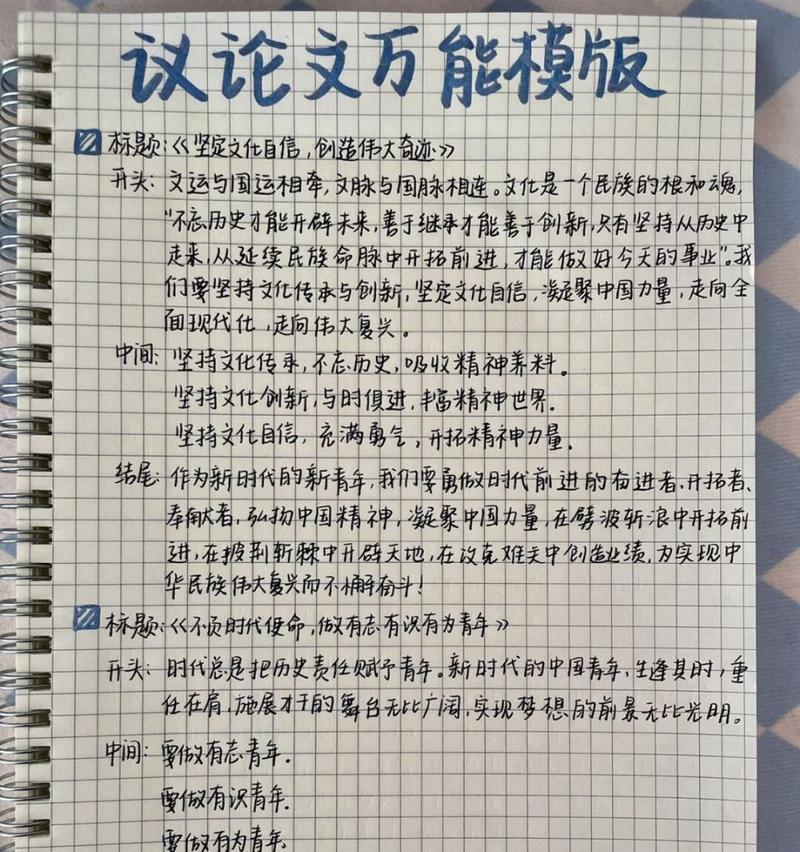 议论文万能模版
标题:《坚定文化自信,创造伟大奇迹》
开头:文运与国运相牵,文脉与国脉相连。文化是一个民族的根和魂,
"不忘历史才能开辟未来,善于继承才能善于创新,只有坚持从历史中
走来,从延续民族命脉中开拓前进,才能做好今天的事业"。我
们要坚持文化传承与创新,坚定文化自信,凝聚中国力量,走向全
面现代化,走向伟大复兴。
中间:坚持文化传承,不忘历史,吸收精神养料。
坚持文化创新,与时俱进,丰富精神世界.
坚持文化自信,充满勇气,开拓精神力量.
结尾:作为新时代的新青年,我们要勇做时代前进的奋进者、开拓者、
奉献者,弘扬中国精神,凝聚中国力量,在劈波斩浪中开拓前
进,在披荆斩棘中开辟天地,在攻克难关中创造业绩,为实现中
华民族伟大复兴而不懈奋斗!
标题:《不负时代使命,做有志有识有为青年》
开头:时代总是把历史责任赋予青年。新时代的中国青年,生逢其时,重
任在肩,施展才干的舞台无比广阔,实现梦想的前景无比光明。
中间:要做有志青年.
要做有识青年.
要做有为青年.